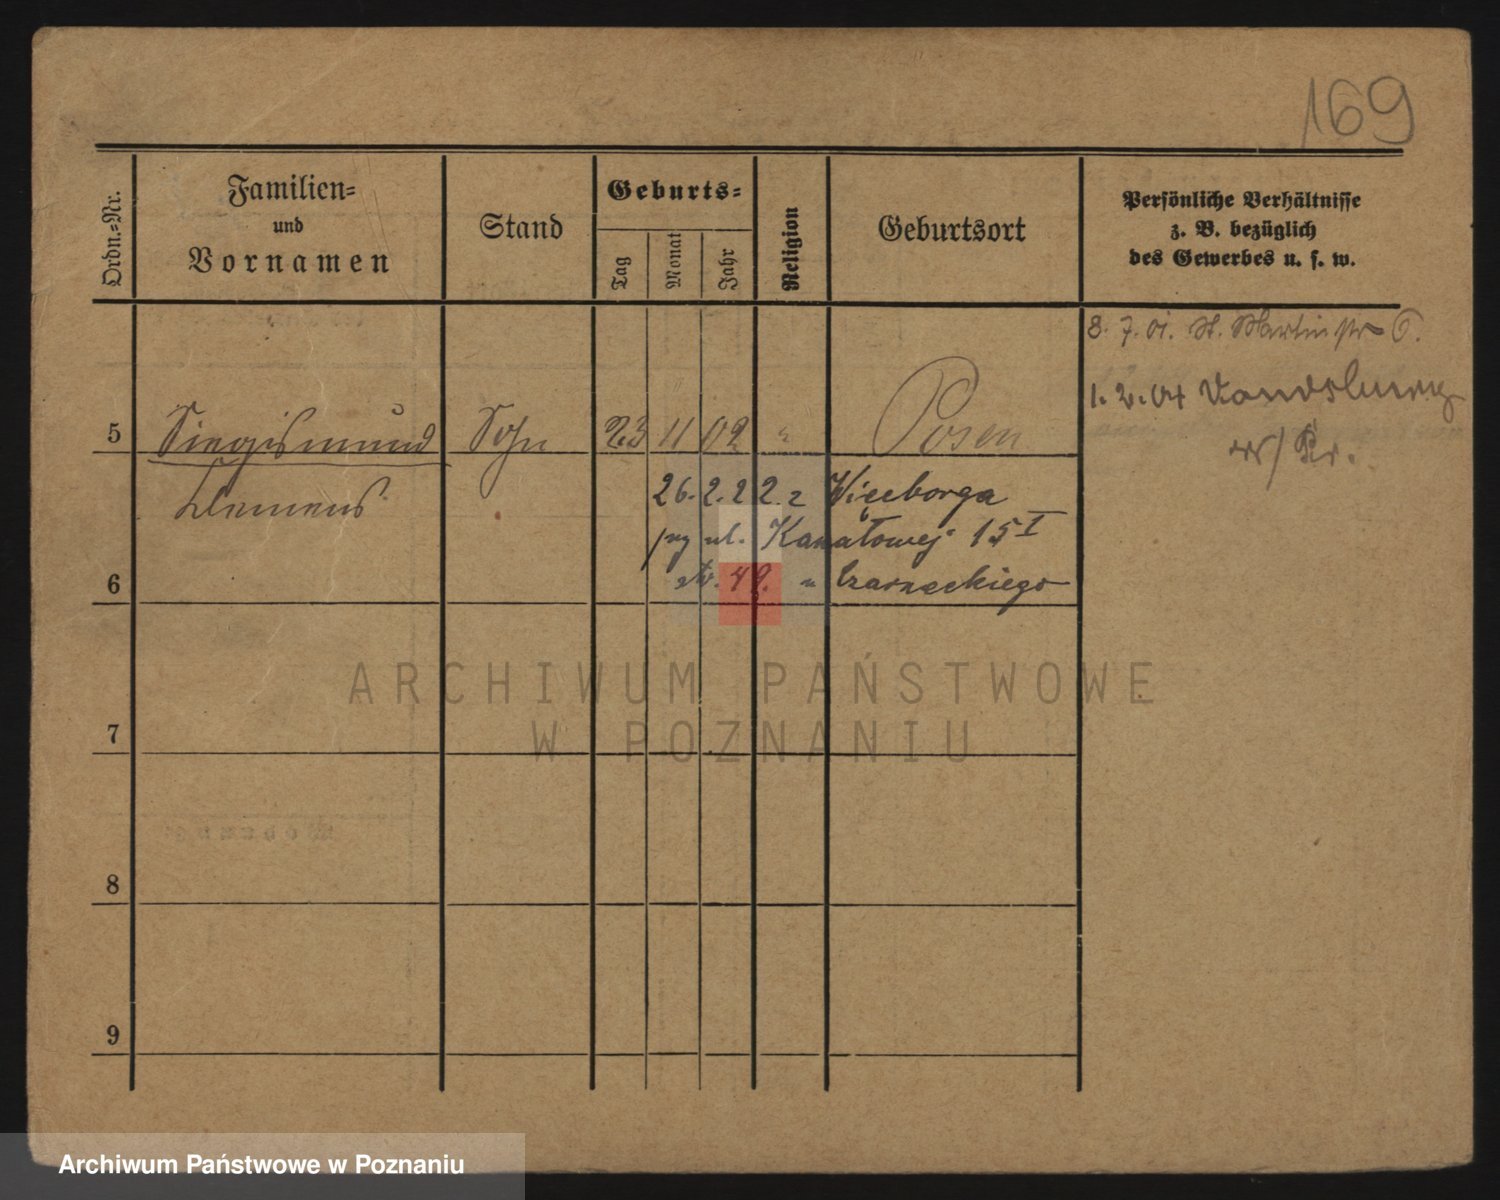 169
Ordn.-Nr.
Familien-
und
Vornamen
Stand
Geburts-
Tag
Monat
Jahr
Religion
Geburtsort
Persönliche Verhältnisse
z. B. bezüglich
des Gewerbes u. s. w.
8. 7. 01. St. Martinstr 6.
1. 2. 04 Vandsburg
w/Pr.
5
Siegismund
Sohn
23
11
02
"
Posen
Klemens
26. 2. 22. z Więcborga
przy ul. Kanałowej 15 I
str. 49. u Czarneckiego
6
7
8
9
ARCHIWUM PAŃSTWOWE
W POZNANIU
Archiwum Państwowe w Poznaniu